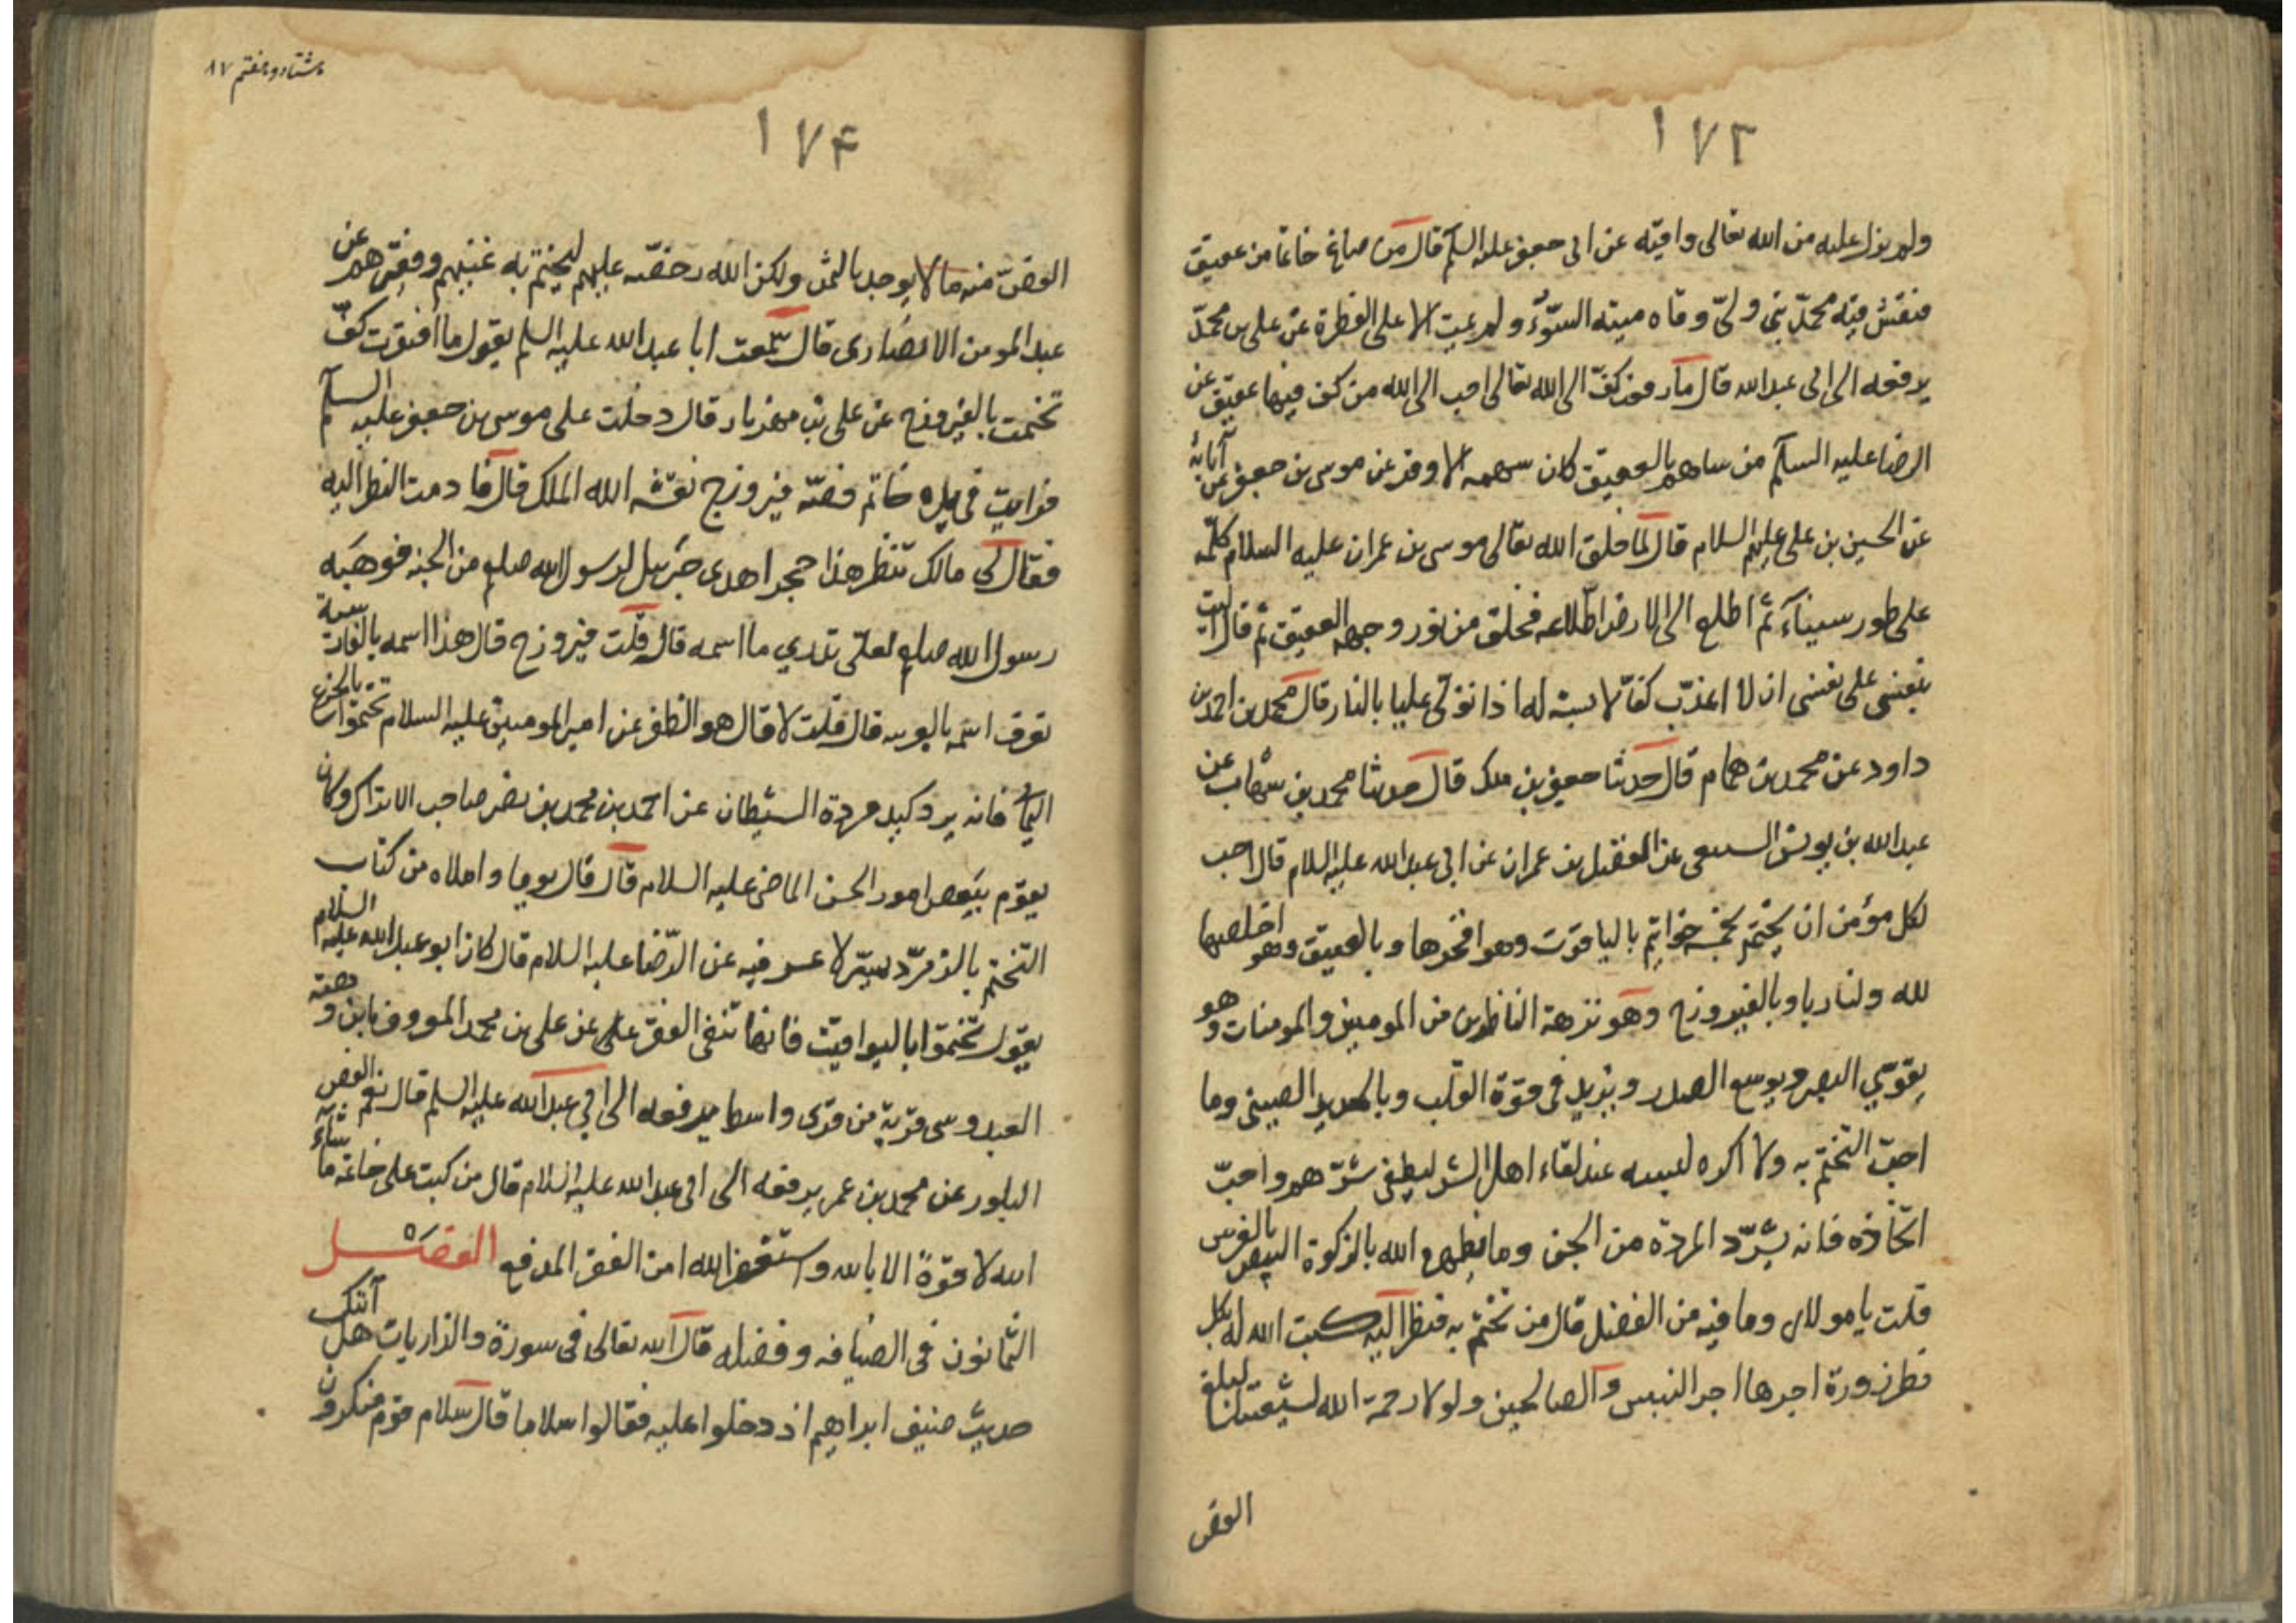 ١٧٣
ولم يزل عليه من الله تعالى واقية عن ابى جعفر عليه السلم قال من صاغ خاتما من عقيق
فنقش فيه محمد نبى وولىّ وقاه ميتة السّوء ولم يمت الا على الفطرة عن على بن محمد
يرفعه الى ابى عبدالله قال ما رفعت كفّ الى الله تعالى احب الى الله من كف فيها عقيق عن
الرضا عليه السلم من ساهم بالعقيق كان سهمه الاوفر عن موسى بن جعفر عن آبائه
عن الحسين بن على عليهم السلام قال لما خلق الله تعالى موسى بن عمران عليه السلام كلّمه
على طور سيناء ثم اطلع الى الارض اطلاعه فخلق من نور وجهه العقيق ثم قال آليت
بنفسى على نفسى ان لا اعذّب كفّا لابسته اذا تولى عليا بالنار قال محمد بن احمد بن
داود عن محمد بن همام قال حدثنا جعفر بن ملك قال حدثنا محمد بن شهاب عن
عبدالله بن يونس السبيعى عن المفضل بن عمران عن ابى عبدالله عليه السلام قال احب
لكل مؤمن ان يختم بخمسة خواتم بالياقوت وهو افخرها وبالعقيق وهو اخلصها
لله ولنا وبالفيروزج وهو نزهة الناظرين من المومنين والمومنات وهو
يقوى البصر ويوسع الصدر ويزيد فى قوة القلب وبالحديد الصينى وما
احبّ التختم به ولا اكره لبسه عند لقاء اهل الشر ليطفى شرّهم واحبّ
اتخاذه فانه يشرّد المردة من الجن وما يظهره الله بالذكوة البيض بالغريين
قلت يا مولاى وما فيه من الفضل قال من تختم به فنظر اليه كتب الله له بكل
نظرة زورة اجرها اجر النبيين والصالحين ولولا رحمة الله لشيعتنا لبلغ
الفص
هشتاد و هفتم ٨٧
١٧۴
الفصّ منه ما لا يوجد بالثمن ولكن الله رخصه عليهم ليختم به غنيهم وفقيرهم عن
عبد المومن الانصارى قال سمعت ابا عبدالله عليه السلم يقول ما افتقرت كفّ
تختمت بالفيروزج عن على بن مهزيار قال دخلت على موسى بن جعفر عليه السلم
فرايت فى يده خاتم فصّه فيروزج نقشه الله الملك قال فادمت النظر اليه
فقال لى مالك تنظر هذا حجر اهدى جبرئيل لرسول الله صلعم من الجنه فوهبه
رسول الله صلعم لعلى تدرى ما اسمه قال قلت فيروزج قال هذا اسمه بالفارسية
تعرف اسمه بالعربيه قال قلت لا قال هو الظفر عن امير المومنين عليه السلام تختموا بالجزع
اليمانى فانه يرد كيد مردة الشيطان عن احمد بن محمد بن نصر صاحب الانزال وكان
يقوم ببعض امور ابى الحسن الماضى عليه السلام قال قال يوما واملاه من كتاب
التختم بالزمرّد يسر لا عسر فيه عن الرّضا عليه السلام قال كان ابو عبدالله عليه السلام
يقول تختموا باليواقيت فانها تنفى الفقر عن على بن محمد المعروف بابن وهبة
العبدوسى قرية من قرى واسط يرفعه الى ابى عبدالله عليه السلم قال نعم الفص
البلور عن محمد بن عمر يرفعه الى ابى عبدالله عليه السلام قال من كتب على خاتمه ما شاء
الله لا قوة الا بالله واستغفر الله امن الفقر المدقع الفصــل
الثمانون فى الضيافه وفضله قال الله تعالى فى سورة والذاريات هل اتيك
حديث ضيف ابراهيم اذ دخلوا عليه فقالوا سلاما قال سلام قوم منكرون